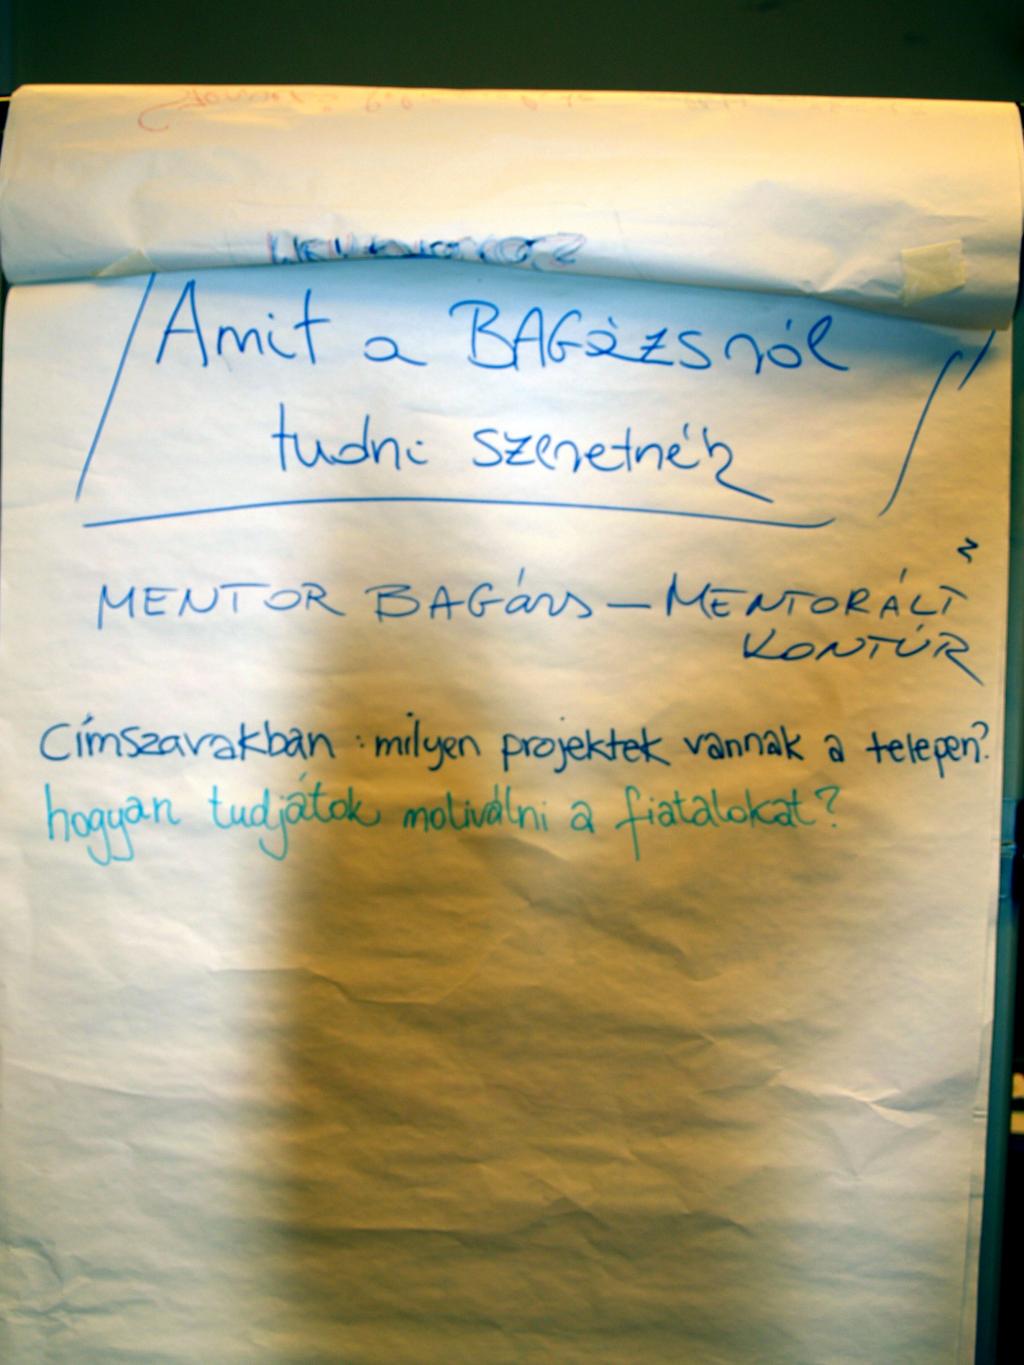 Amit a BAGázsról
tudni szeretnék
MENTOR BAGázs – MENTORÁLT
KONTÚR
Címszavakban: milyen projektek vannak a telepen?
hogyan tudjátok motiválni a fiatalokat?